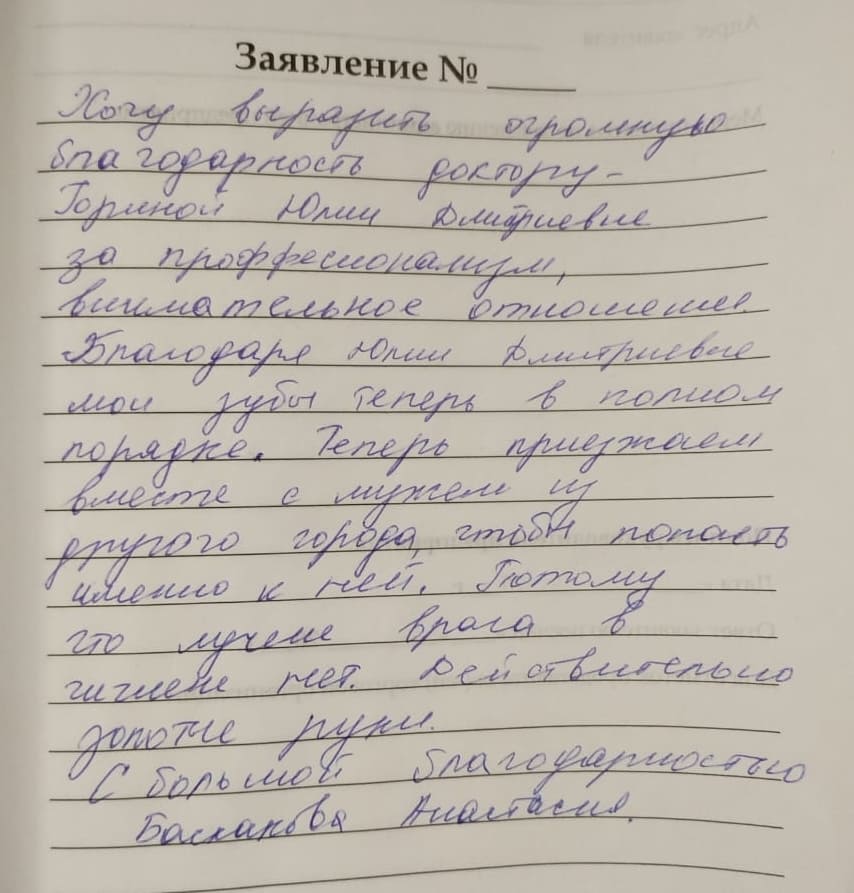 Заявление № ____
Хочу выразить огромную
благодарность доктору-
Горяной Юлии Дмитриевне
за проффесионализм,
внимательное отношение.
Благодаря Юлии Дмитриевне
мои зубы теперь в полном
порядке. Теперь приезжаем
вместе с мужем из
другого города, чтобы попасть
именно к ней. Потому
что лучше врача в
гигиене нет. Действительно
золотые руки.
С большой благодарностью
Баскакова Анастасия.